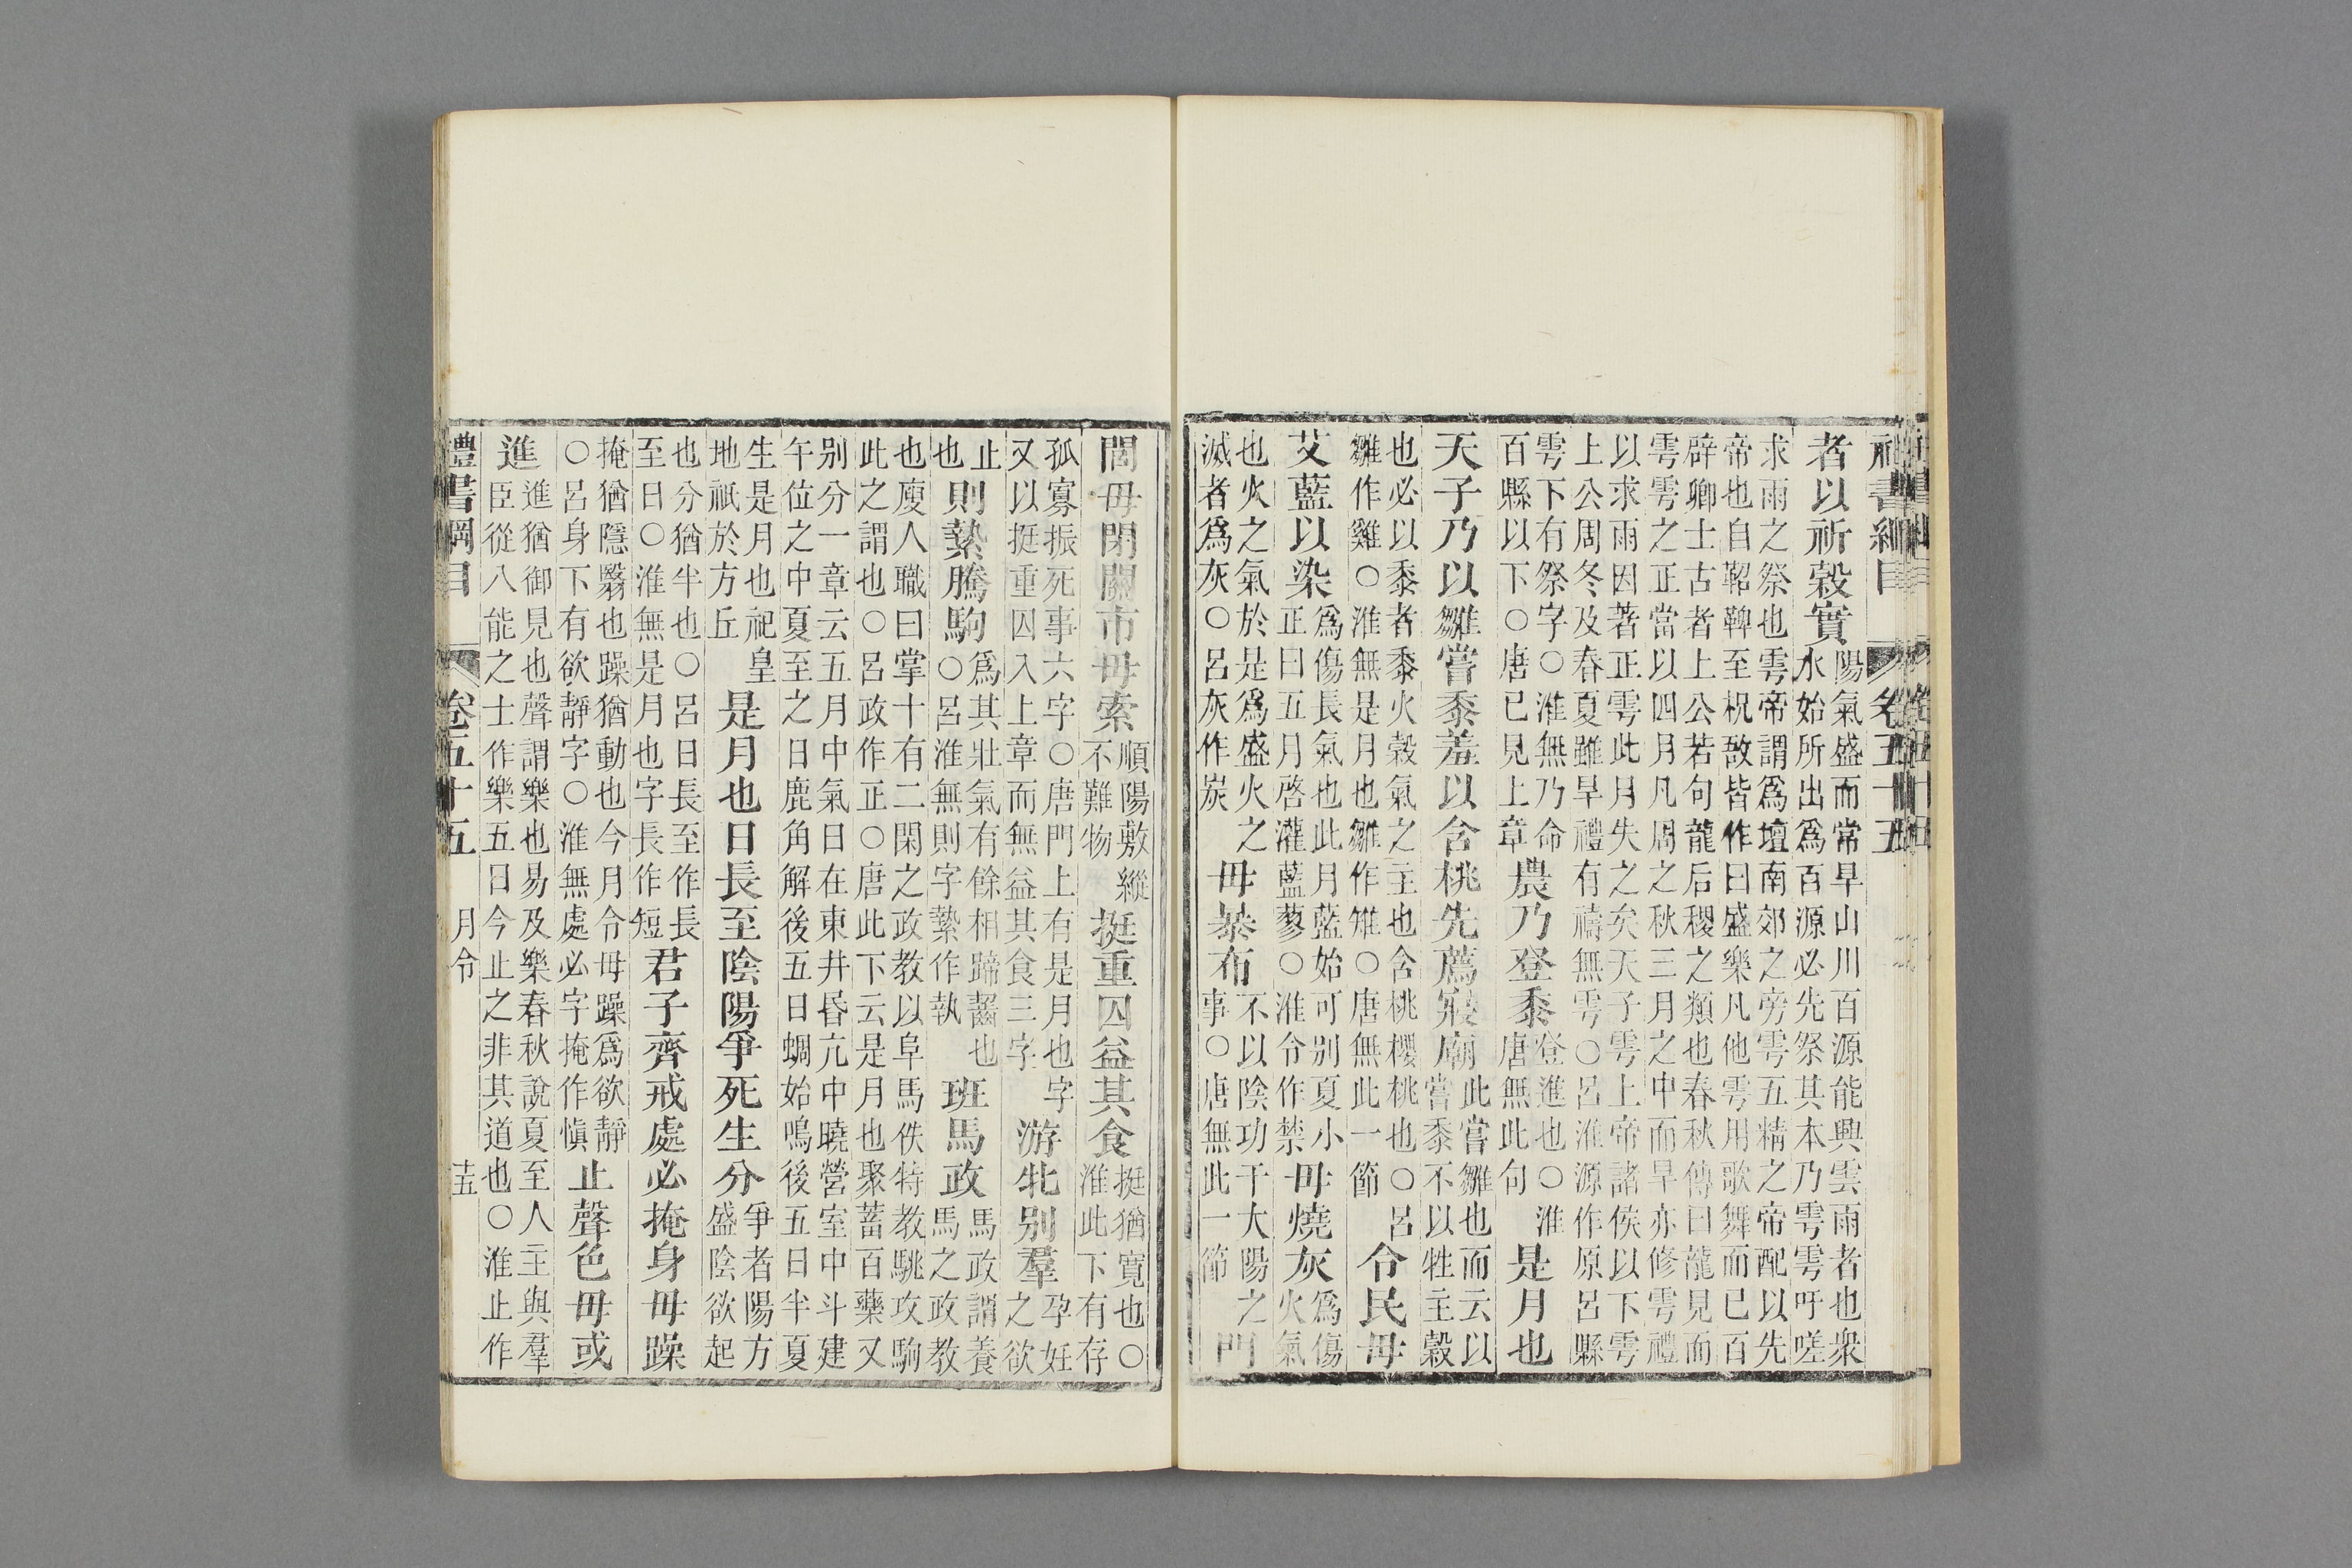 禮書綱目 卷五十五
者以祈穀實陽氣盛而常旱山川百源能興雲雨者也衆水始所出爲百源必先祭其本乃雩雩吁嗟
求雨之祭也雩帝謂爲壇南郊之旁雩五精之帝配以先
帝也自鞀鞞至柷敔皆作曰盛樂凡他雩用歌舞而已百
辟卿士古者上公若句龍后稷之類也春秋傳曰龍見而
雩雩之正當以四月凡周之秋三月之中而旱亦修雩禮
以求雨因著正雩此月失之矣天子雩上帝諸侯以下雩
上公周冬及春夏雖旱禮有禱無雩○呂淮源作原呂縣
雩下有祭字○淮無乃命百縣以下○唐已見上章農乃登黍登進也○淮唐無此句是月也
天子乃以雛嘗黍羞以含桃先薦寢廟此嘗雛也而云以嘗黍不以牲主穀
也必以黍者黍火穀氣之主也含桃櫻桃也○呂雛作雞○淮無是月也雛作雉○唐無此一節令民毋
艾藍以染爲傷長氣也此月藍始可别夏小正曰五月啓灌藍蓼○淮令作禁毋燒灰爲傷火氣
也火之氣於是爲盛火之滅者爲灰○呂灰作炭毋暴布不以陰功干大陽之事○唐無此一節門
閭毋閉關市毋索順陽敷縱不難物挺重囚益其食挺猶寬也○淮此下有存
孤寡振死事六字○唐門上有是月也字又以挺重囚入上章而無益其食三字游牝别羣孕妊之欲
止也則縶騰駒爲其壯氣有餘相蹄齧也○呂淮無則字縶作執班馬政馬政謂養馬之政教
也廋人職曰掌十有二閑之政教以阜馬佚特教駣攻駒
此之謂也○呂政作正○唐此下云是月也聚蓄百藥又
别分一章云五月中氣日在東井昏亢中曉營室中斗建
午位之中夏至之日鹿角解後五日蜩始鳴後五日半夏
生是月也祀皇地祇於方丘是月也日長至陰陽爭死生分爭者陽方盛陰欲起
也分猶半也○呂日長至作長至日○淮無是月也字長作短君子齊戒處必掩身毋躁
掩猶隱翳也躁猶動也今月令毋躁爲欲靜○呂身下有欲靜字○淮無處必字掩作愼止聲色毋或
進進猶御見也聲謂樂也易及樂春秋說夏至人主與羣臣從八能之士作樂五日今止之非其道也○淮止作
禮書綱目 卷五十五 月令 十五